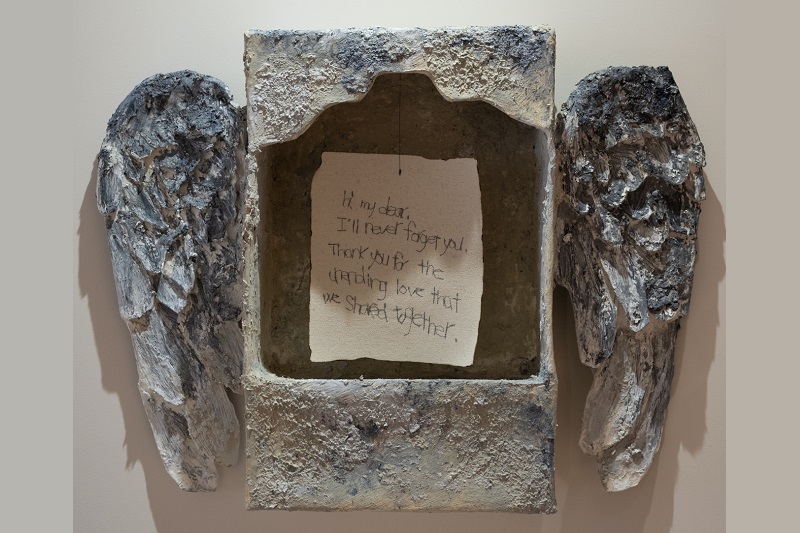 hi, my dear.
I'll never forget you.
Thank you for the
unending love that
we shared together.